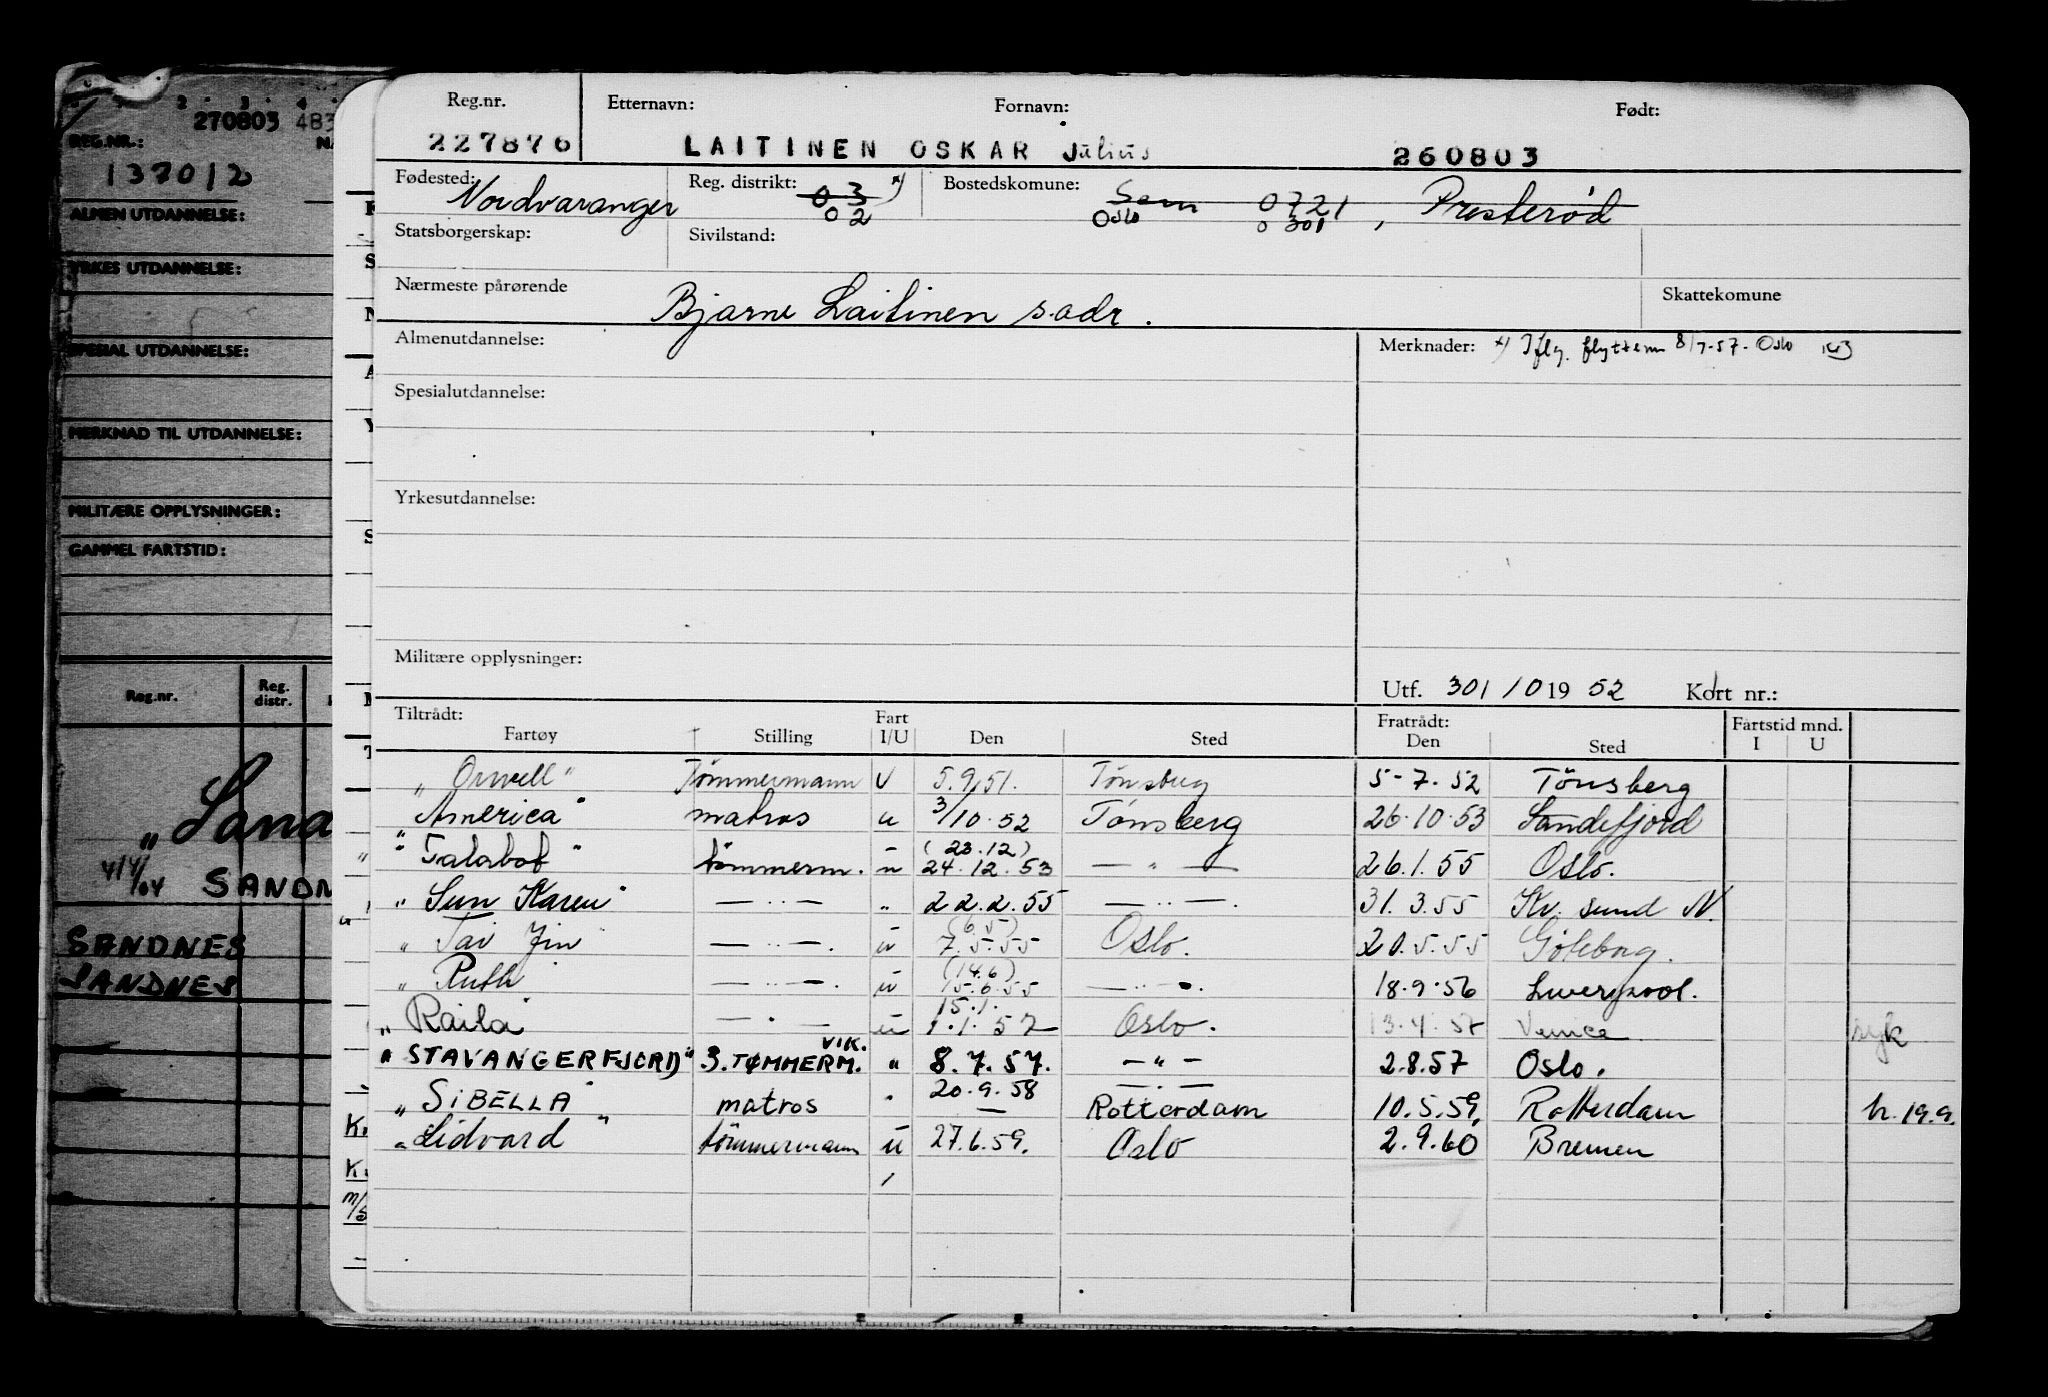 2 3 4
270803 483
REG.NR.:
137012
ALMEN UTDANNELSE:
YRKES UTDANNELSE:
SPESIAL UTDANNELSE:
MERKNAD TIL UTDANNELSE:
MILITÆRE OPPLYSNINGER:
GAMMEL FARTSTID:
Reg.nr. Reg. distr.
SANDNES
SANDNES
Reg.nr. Etternavn: Fornavn: Født:
227876 LAITINEN OSKAR Julius 260803
Fødested: Nordvaranger Reg. distrikt: 03 x) Bostedskomune: Sem 0721, Presterød
02 Oslo 0301
Statsborgerskap: Sivilstand:
Nærmeste pårørende Bjarne Laitinen s.adr. Skattekomune
Almenutdannelse: Merknader: x) Iflg. flyttem 8/7-57. Oslo
Spesialutdannelse:
Yrkesutdannelse:
Militære opplysninger:
Utf. 301/10 19 52 Kort nr.:
Tiltrådt: Fart Fratrådt: Fartstid mnd.
Fartøy Stilling I/U Den Sted Den Sted I U
„ Orwell " Tømmermann U 5.9.51. Tönsberg 5-7.52 Tönsberg
„ America " matros u 3/10.52 Tønsberg 26.10.53 Sandefjord
(23.12)
" Talabot " tömmerm. u 24.12.53 — " — 26.1.55 Oslo.
„ Sun Karen " — " — " 22.2.55 — " —. 31.3.55 Kr. sund N.
(6.5)
„ Tai Yin " — " —. u 7.5.55 Oslo. 20.5.55 Göteborg.
(14.6)
„ Ruth " — " —. u 15.6.55 — " —. 18.9.56 Liverpool.
15.1.
„ Raila " — " — u 1.1.57 Oslo. 13.4.57 Venice syk
VIK.
" STAVANGERFJORD" 3. TØMMERM. " 8.7.57. — " — 2.8.57 Oslo.
20.9.58 — " —
„ SIBELLA " matros " — Rotterdam 10.5.59. Rotterdam h. 19.9.
„ Lidvard " tömmermann u 27.6.59. Oslo 2.9.60 Bremen